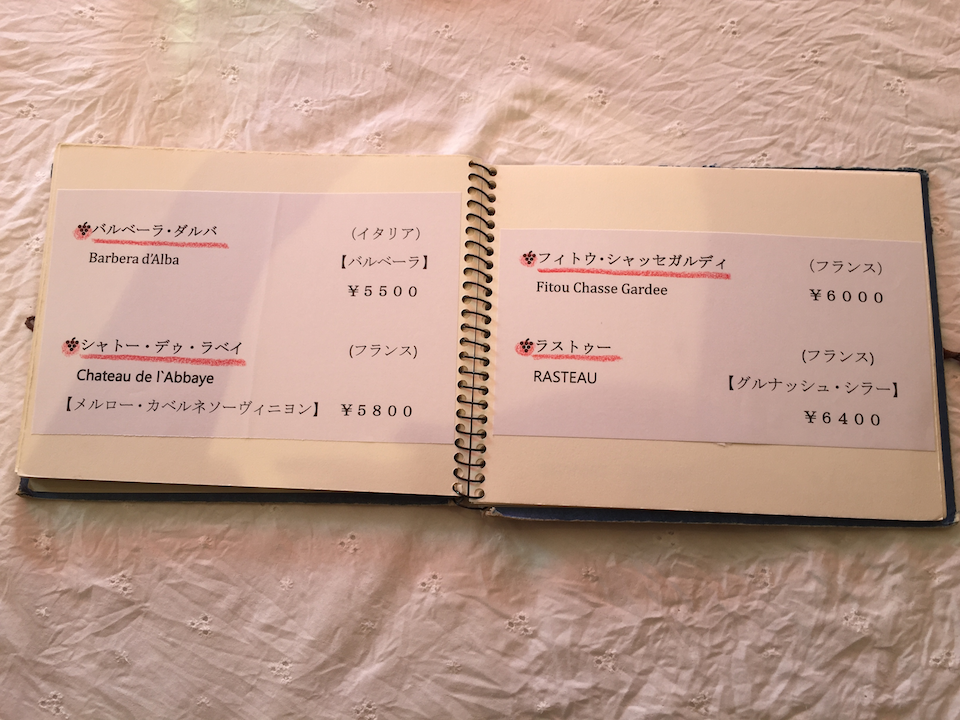 バルベーラ・ダルバ （イタリア）
Barbera d'Alba 【バルベーラ】
￥５５００
シャトー・デゥ・ラベイ (フランス)
Chateau de l`Abbaye
【メルロー・カベルネソーヴィニヨン】 ￥５８００
フィトウ・シャッセガルディ （フランス）
Fitou Chasse Gardee ￥６０００
ラストゥー (フランス)
RASTEAU 【グルナッシュ・シラー】
￥６４００